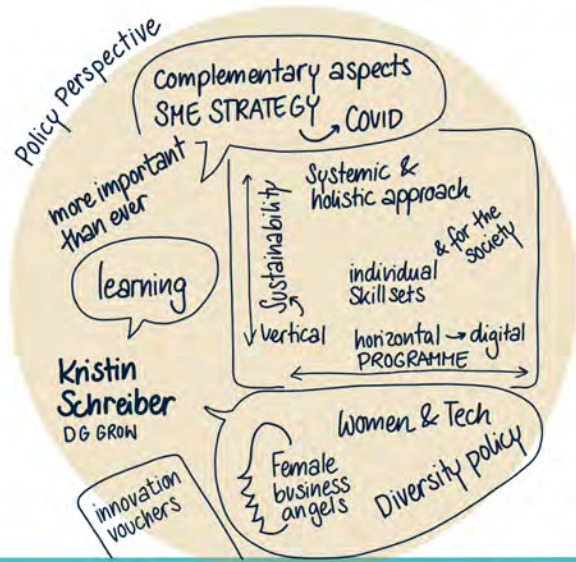 Policy Perspective
complementary aspects
SME STRATEGY
COVID
more important
than ever
Systemic &
holistic approach
Sustainability
& for the
society
individual
Skill sets
learning
vertical
horizontal → digital
PROGRAMME
Kristin
Schreiber
DG GROW
Women & Tech
Female
business
angels
Diversity policy
innovation
vouchers